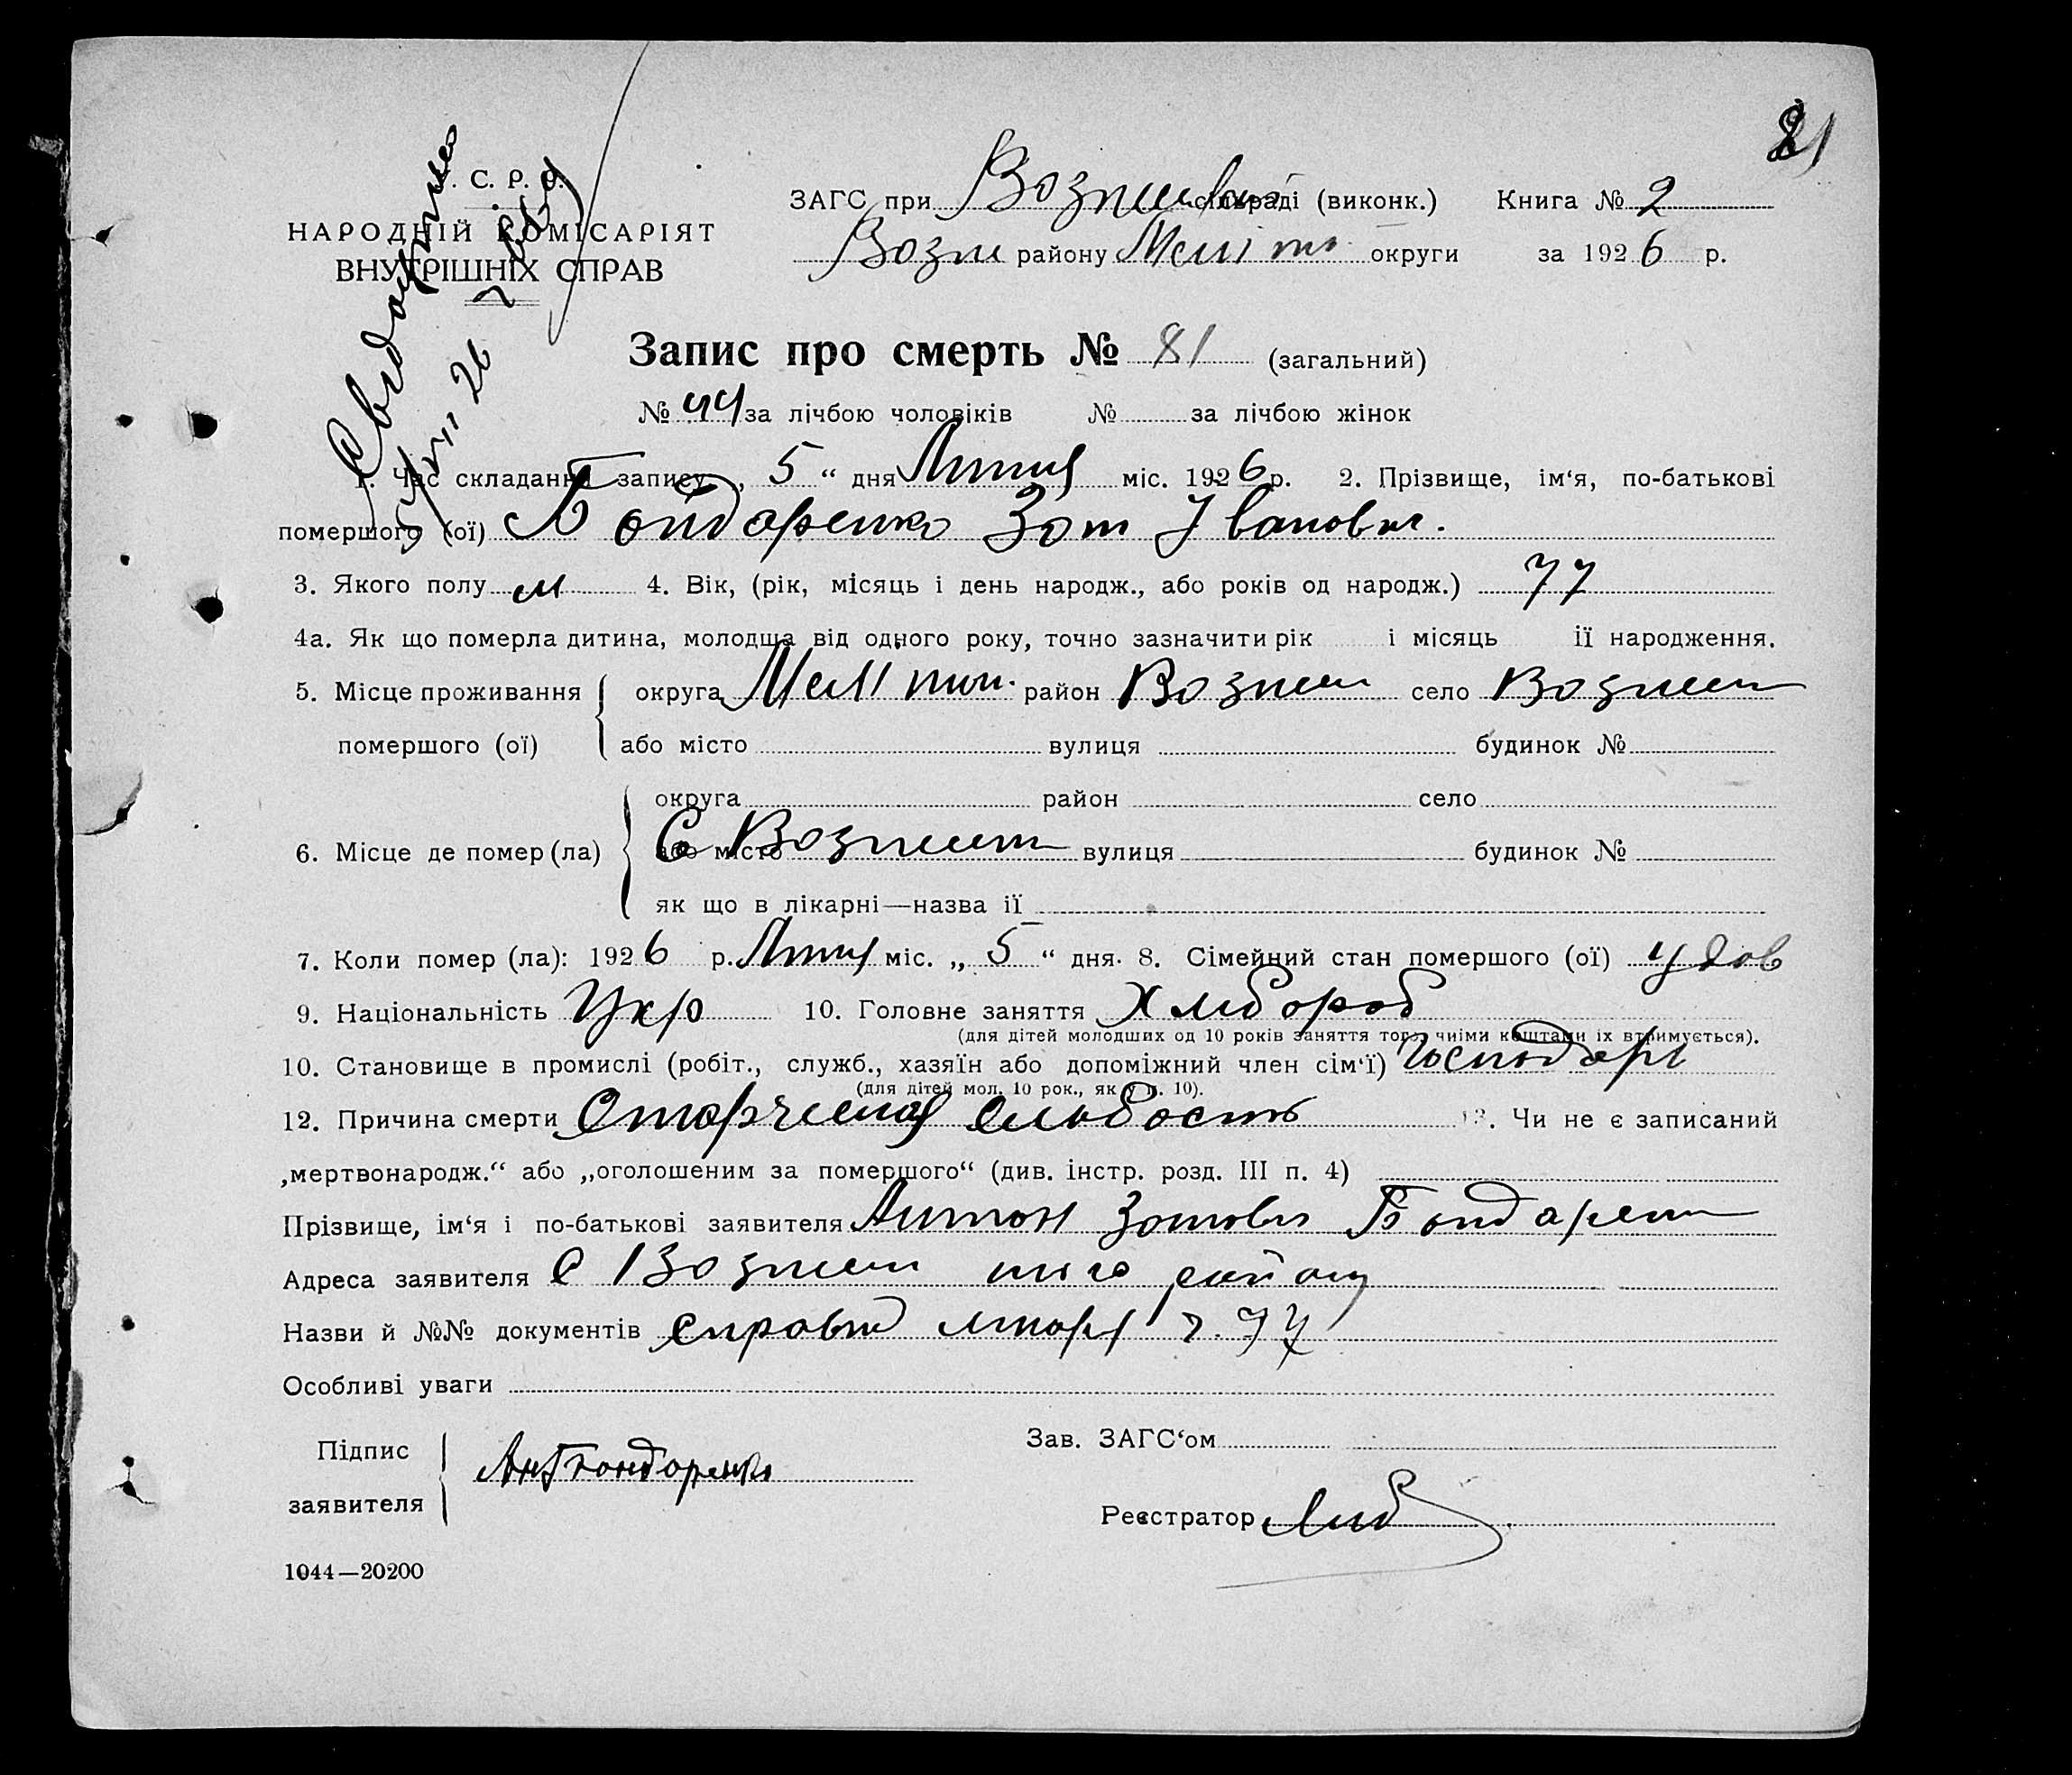 21
С. Р. Р.
НАРОДНІЙ КОМІСАРІЯТ
ВНУТРІШНІХ СПРАВ
ЗАГС при сільраді (виконк.) Книга № 2
Возне району Меліто округи за 1926 р.
Запис про смерть № 81 (загальний)
№ 44 за лічбою чоловіків № за лічбою жінок
1. Час складання запису „ 5 “ дня міс. 1926 р. 2. Прізвище, ім‘я, по-батькові
помершого (ої) Бондаренко Зот Іванович.
3. Якого полу м 4. Вік, (рік, місяць і день народж., або років од народж.) 77
4а. Як що померла дитина, молодша від одного року, точно зазначити рік і місяць її народження.
5. Місце проживання округа Мелітоп. район Вознесен село Вознесен
помершого (ої) або місто вулиця будинок №
округа район село
6. Місце де помер (ла) С Вознесен або місто вулиця будинок №
як що в лікарні—назва її
7. Коли помер (ла): 1926 р. міс. „ 5 “ дня. 8. Сімейний стан помершого (ої) удов
9. Національність Укр 10. Головне заняття Хлібороб
(для дітей молодших од 10 років заняття того, чиїми коштами їх втримується).
10. Становище в промислі (робіт., служб., хазяїн або допоміжний член сім‘ї) Господарь
(для дітей мол. 10 рок., як у п. 10).
12. Причина смерти Старческая слабость 13. Чи не є записаний
„мертвонародж.“ або „оголошеним за помершого“ (див. інстр. розд. III п. 4)
Прізвище, ім‘я і по-батькові заявителя Антон Зотович Бондарен
Адреса заявителя С Вознесен того району
Назви й №№ документів справка ч. 77
Особливі уваги
Підпис
заявителя Ан Бондаренко
Зав. ЗАГС‘ом
Реєстратор
1044—20200